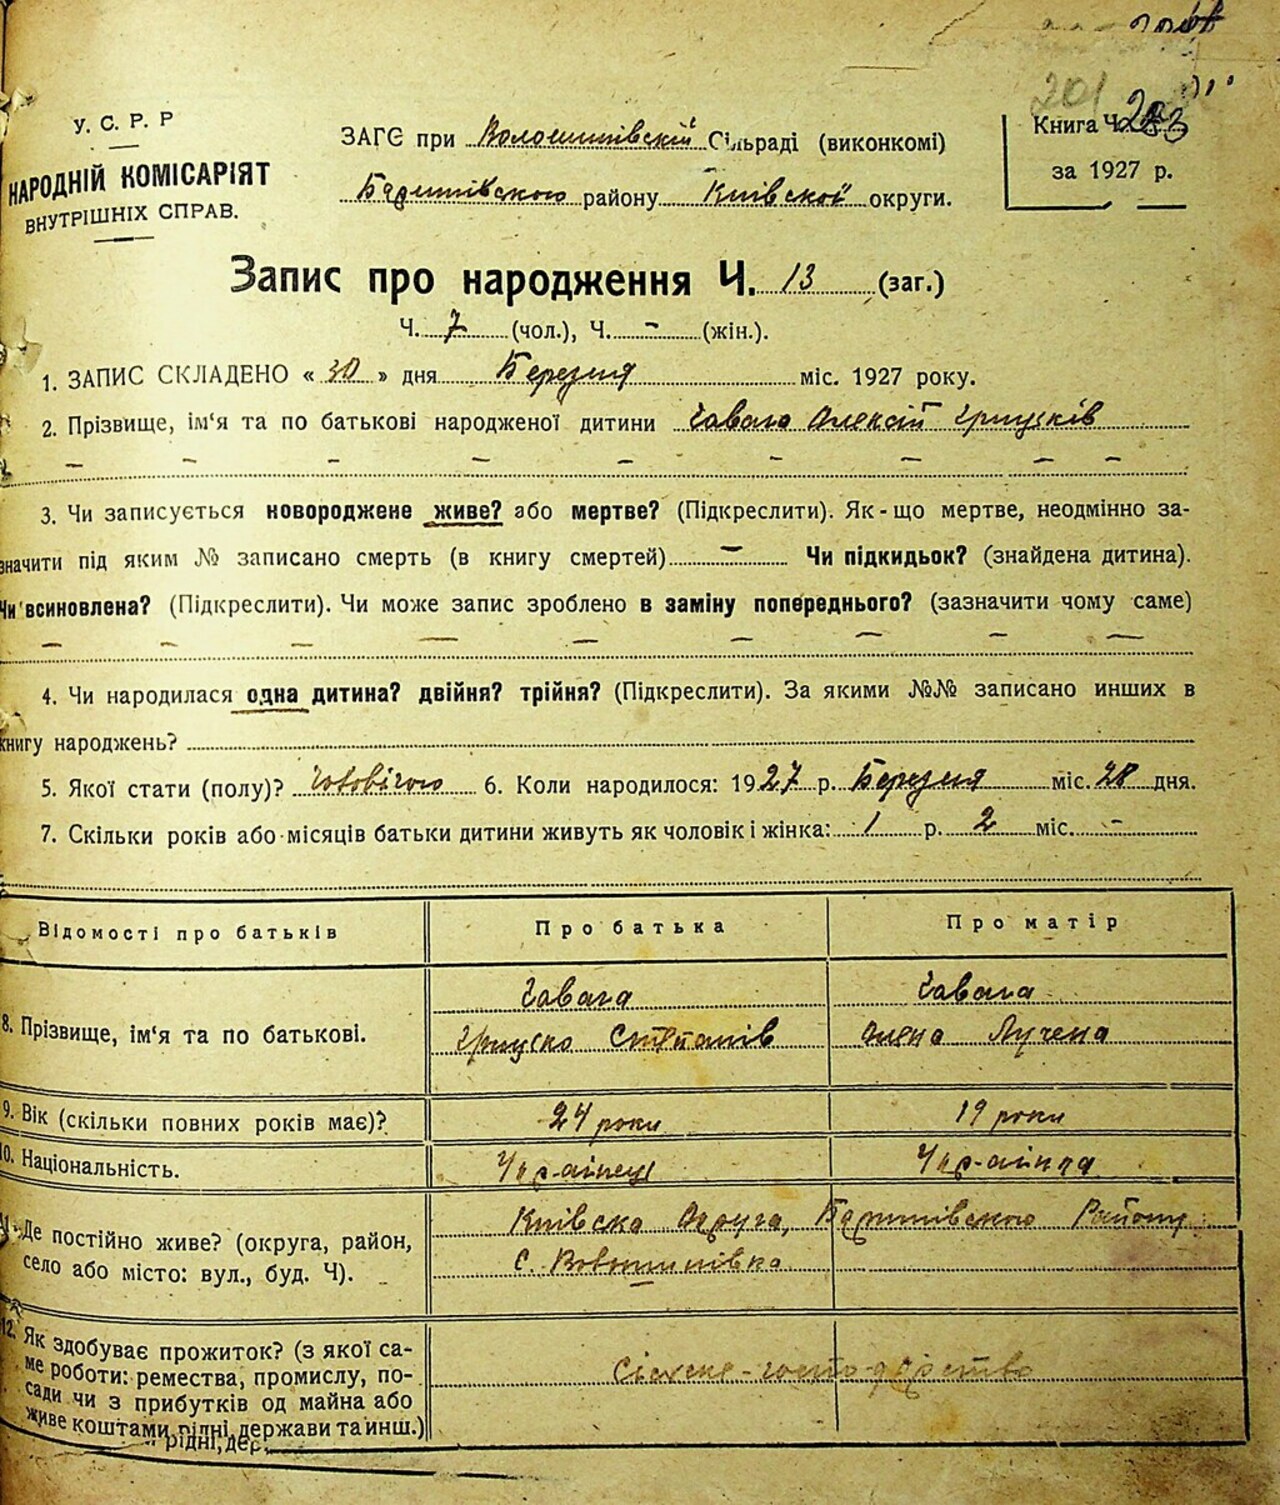 201
283
У. С. Р. Р
НАРОДНІЙ КОМІСАРІЯТ
ВНУТРІШНІХ СПРАВ.
ЗАГС при Волошинівській Сільраді (виконкомі)
Баришівського району Київської округи.
Книга Ч.
за 1927 р.
Запис про народження Ч. 13 (заг.)
Ч. 7 (чол.), Ч. – (жін.).
1. ЗАПИС СКЛАДЕНО « 30 » дня Березня міс. 1927 року.
2. Прізвище, ім'я та по батькові народженої дитини Чавага Олексій Грицьків
3. Чи записується новороджене живе? або мертве? (Підкреслити). Як-що мертве, неодмінно за-
значити під яким № записано смерть (в книгу смертей) – Чи підкидьок? (знайдена дитина).
Чи всиновлена? (Підкреслити). Чи може запис зроблено в заміну попереднього? (зазначити чому саме)
4. Чи народилася одна дитина? двійня? трійня? (Підкреслити). За якими №№ записано инших в
книгу народжень?
5. Якої стати (полу)? Чоловічого 6. Коли народилося: 1927 р. Березня міс. 28 дня.
7. Скільки років або місяців батьки дитини живуть як чоловік і жінка: 1 р. 2 міс. –
Відомості про батьків Про батька Про матір
8. Прізвище, ім'я та по батькові. Чавага Чавага
Грицько Степанів Олена Лучена
9. Вік (скільки повних років має)? 24 роки 19 роки
10. Національність. Українець Українка
11. Де постійно живе? (округа, район,
село або місто: вул., буд. Ч).
Київська Округа, Баришівського Району
с. Волошинівка
12. Як здобуває прожиток? (з якої са-
ме роботи: ремества, промислу, по-
сади чи з прибутків од майна або
живе коштами рідні, держави та инш.)
Сільське-господарство
рідні, дер.